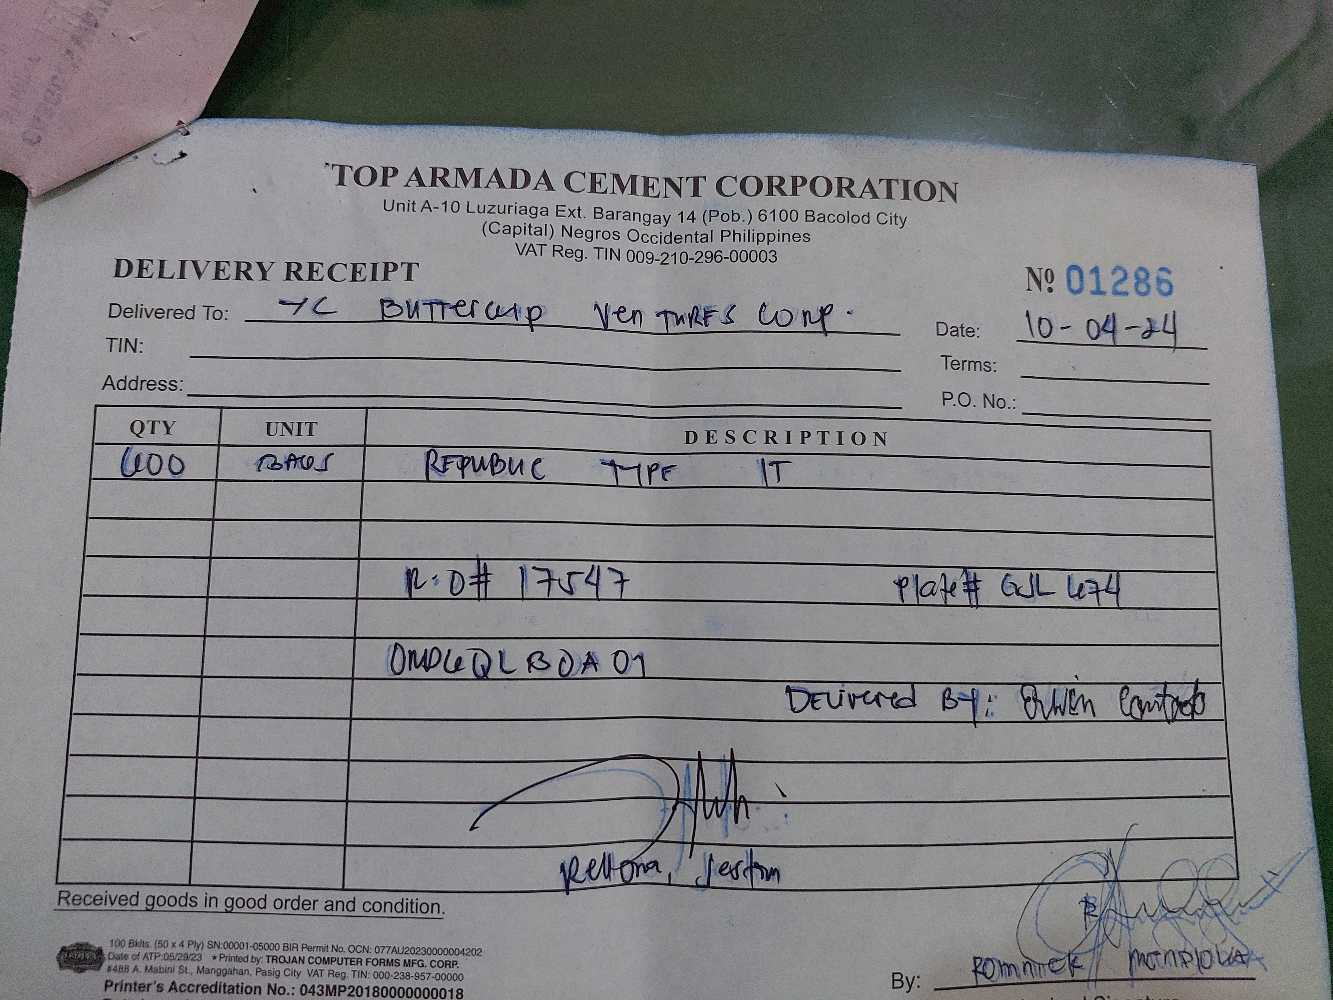 TOP ARMADA CEMENT CORPORATION
Unit A-10 Luzuriaga Ext. Barangay 14 (Pob.) 6100 Bacolod City
(Capital) Negros Occidental Philippines
VAT Reg. TIN 009-210-296-00003
DELIVERY RECEIPT
Nº 01286
Delivered To: YC Buttercup Ventures Corp.
Date: 10-04-24
TIN:
Terms:
Address:
P.O. No.:
QTY UNIT DESCRIPTION
600 BAGS REPUBLIC TYPE 1T
R.O# 17547 Plate# GJL 674
Delivered By:
Received goods in good order and condition.
100 Bklts. (50 x 4 Ply) SN:00001-05000 BIR Permit No. OCN: 077AU20230000004202
Date of ATP:05/29/23 ★Printed by: TROJAN COMPUTER FORMS MFG. CORP.
#488 A. Mabini St., Manggahan, Pasig City VAT Reg. TIN: 000-238-957-00000
Printer's Accreditation No.: 043MP20180000000018
By: